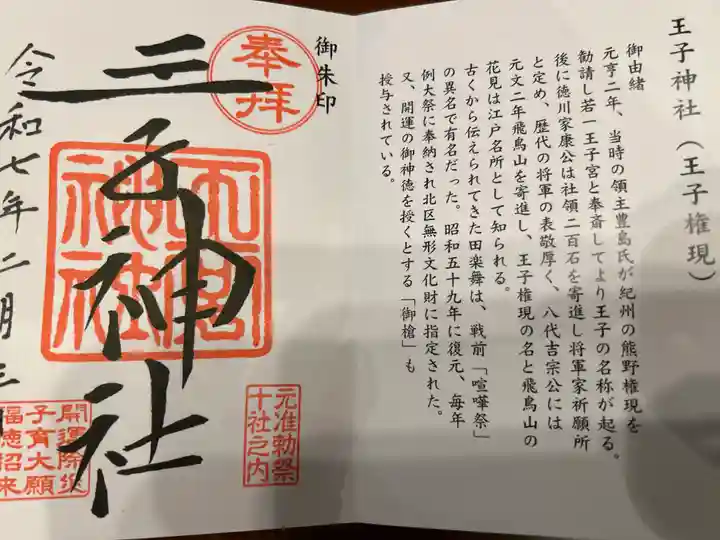 王子神社（王子権現）
御由緒
元亨二年、当時の領主豊島氏が紀州の熊野権現を
勧請し若一王子宮と奉斎してより王子の名称が起る。
後に徳川家康公は社領二百石を寄進し将軍家祈願所
と定め、歴代の将軍の表敬厚く、八代吉宗公には
元文二年飛鳥山を寄進し、王子権現の名と飛鳥山の
花見は江戸名所として知られる。
古くから伝えられてきた田楽舞は、戦前「喧嘩祭」
の異名で有名だった。昭和五十九年に復元、毎年
例大祭に奉納され北区無形文化財に指定された。
又、開運の御神徳を授くとする「御槍」も
授与されている。
御朱印
奉拝
王子神社
元准勅祭
十社之内
令和七年二月三
開運除災
子育大願
福徳招来